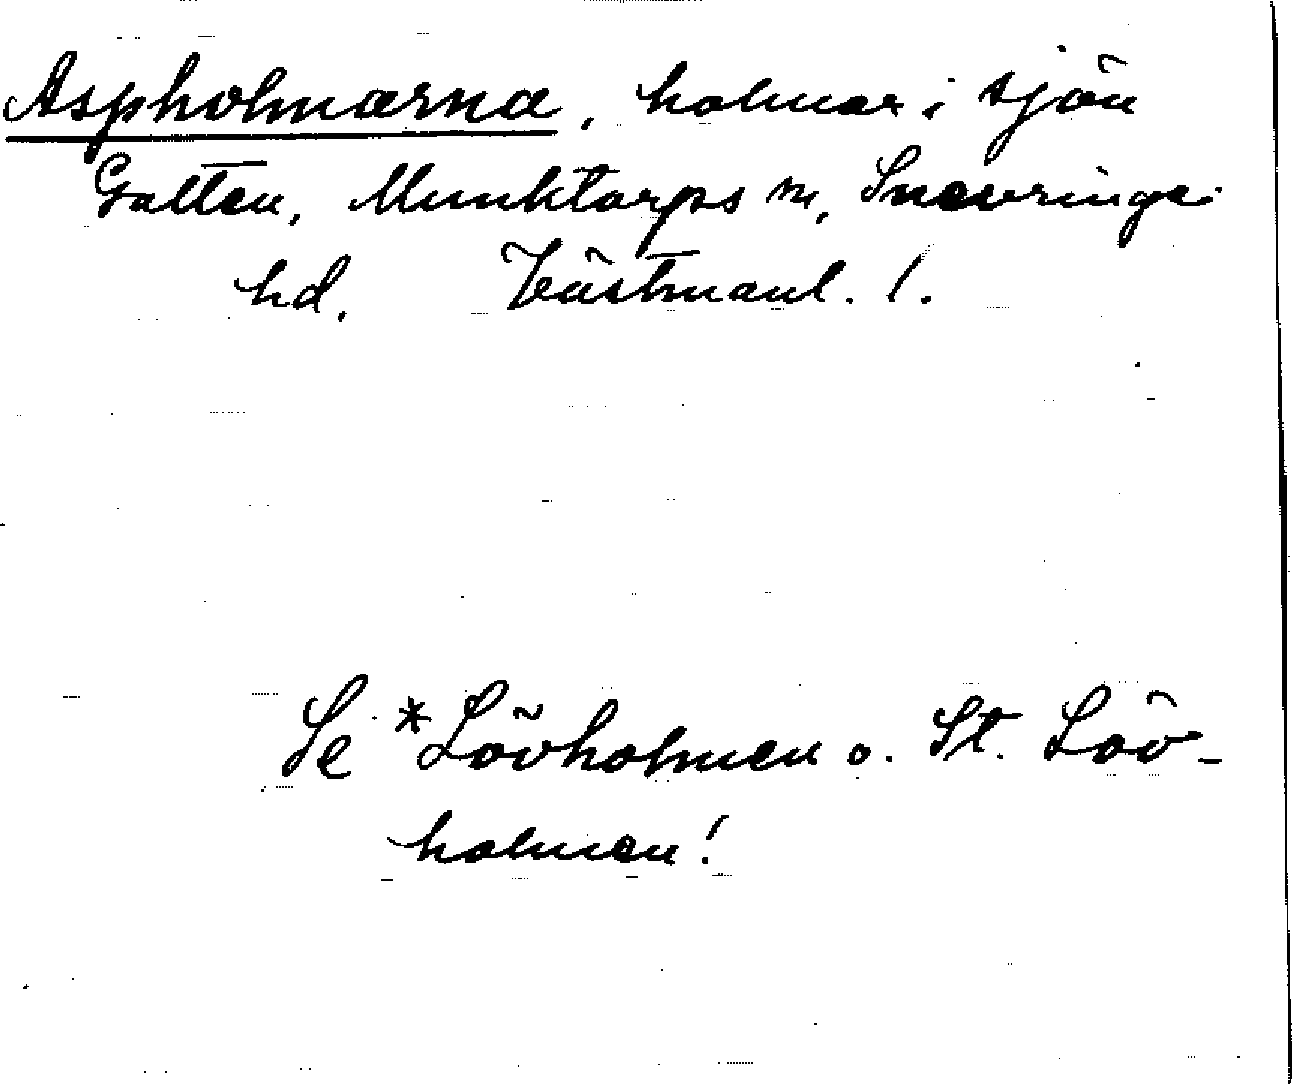 Aspholmarna, holmar i sjön
Galten, Munktorps sn, Snevringe
hd. Västmanl. l.
Se *Lövholmen o. St. Löv-
holmen!